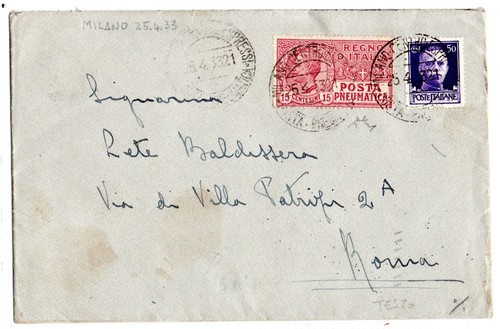 MILANO 25.4.33
REGNO D'ITALIA
15 CENTESIMI 15
POSTA PNEUMATICA
50
POSTE ITALIANE
Signorina
Lete Baldissera
Via di Villa Patrizi 2A
Roma
TESTO